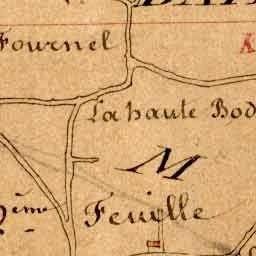 Fournel
La haute Bod
M
ème
Feuille